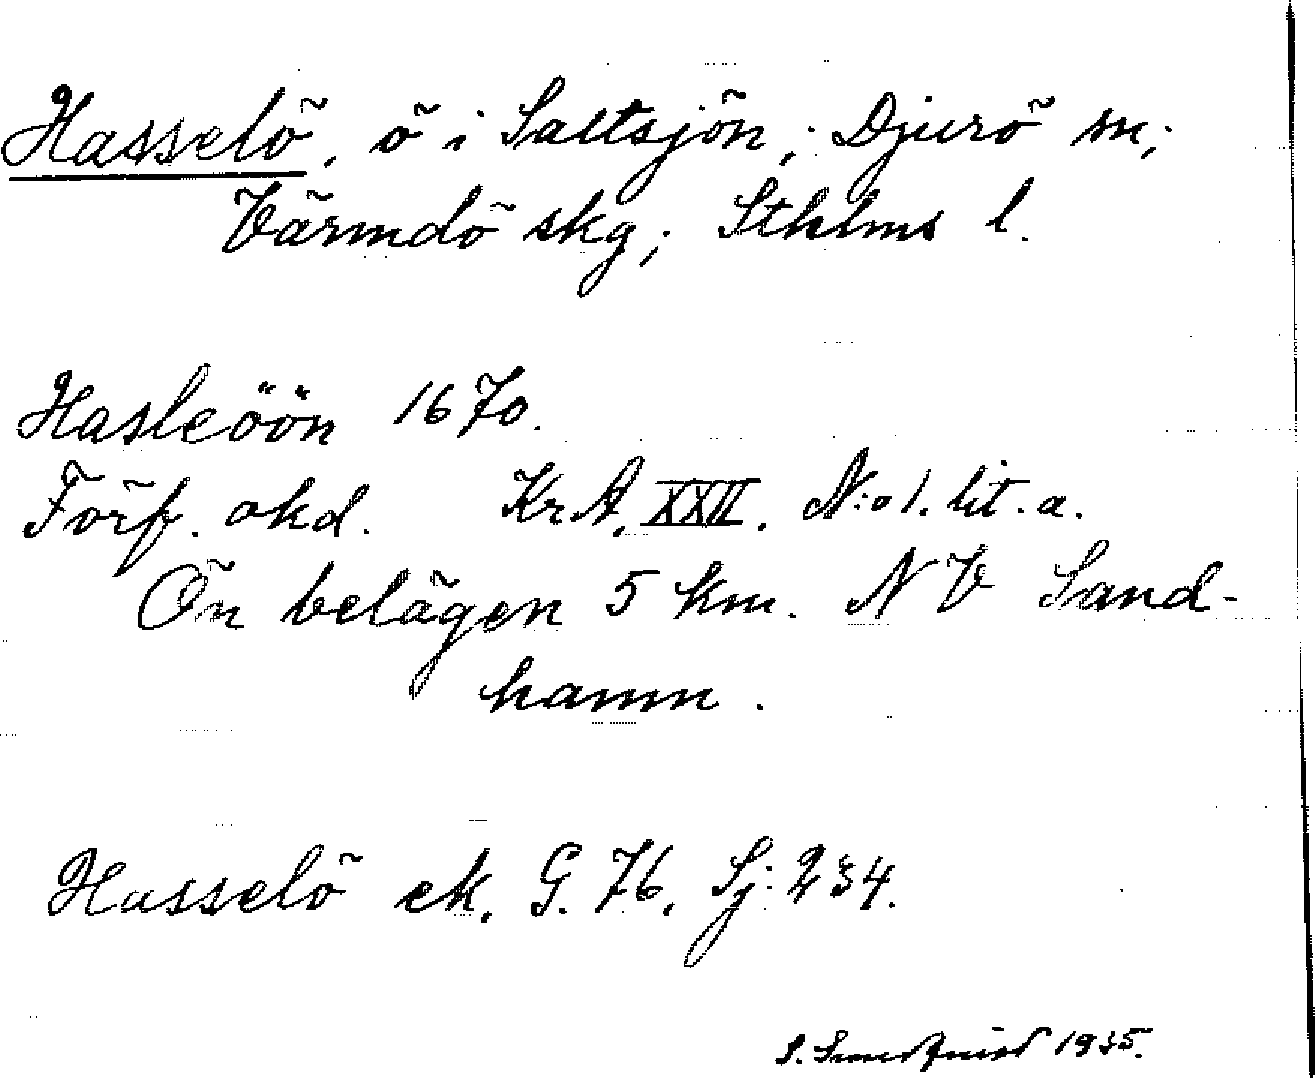 Hasselö, ö i Saltsjön; Djurö sn;
Värmdö skg; Sthlms l.
Hasleöön 1670.
Förf. okd. Kr.A. XXII. N:o 1. lit. a.
Ön belägen 5 km. NV Sand-
hamn.
Hasselö ek. G. 76. Sj: 234.
1935.